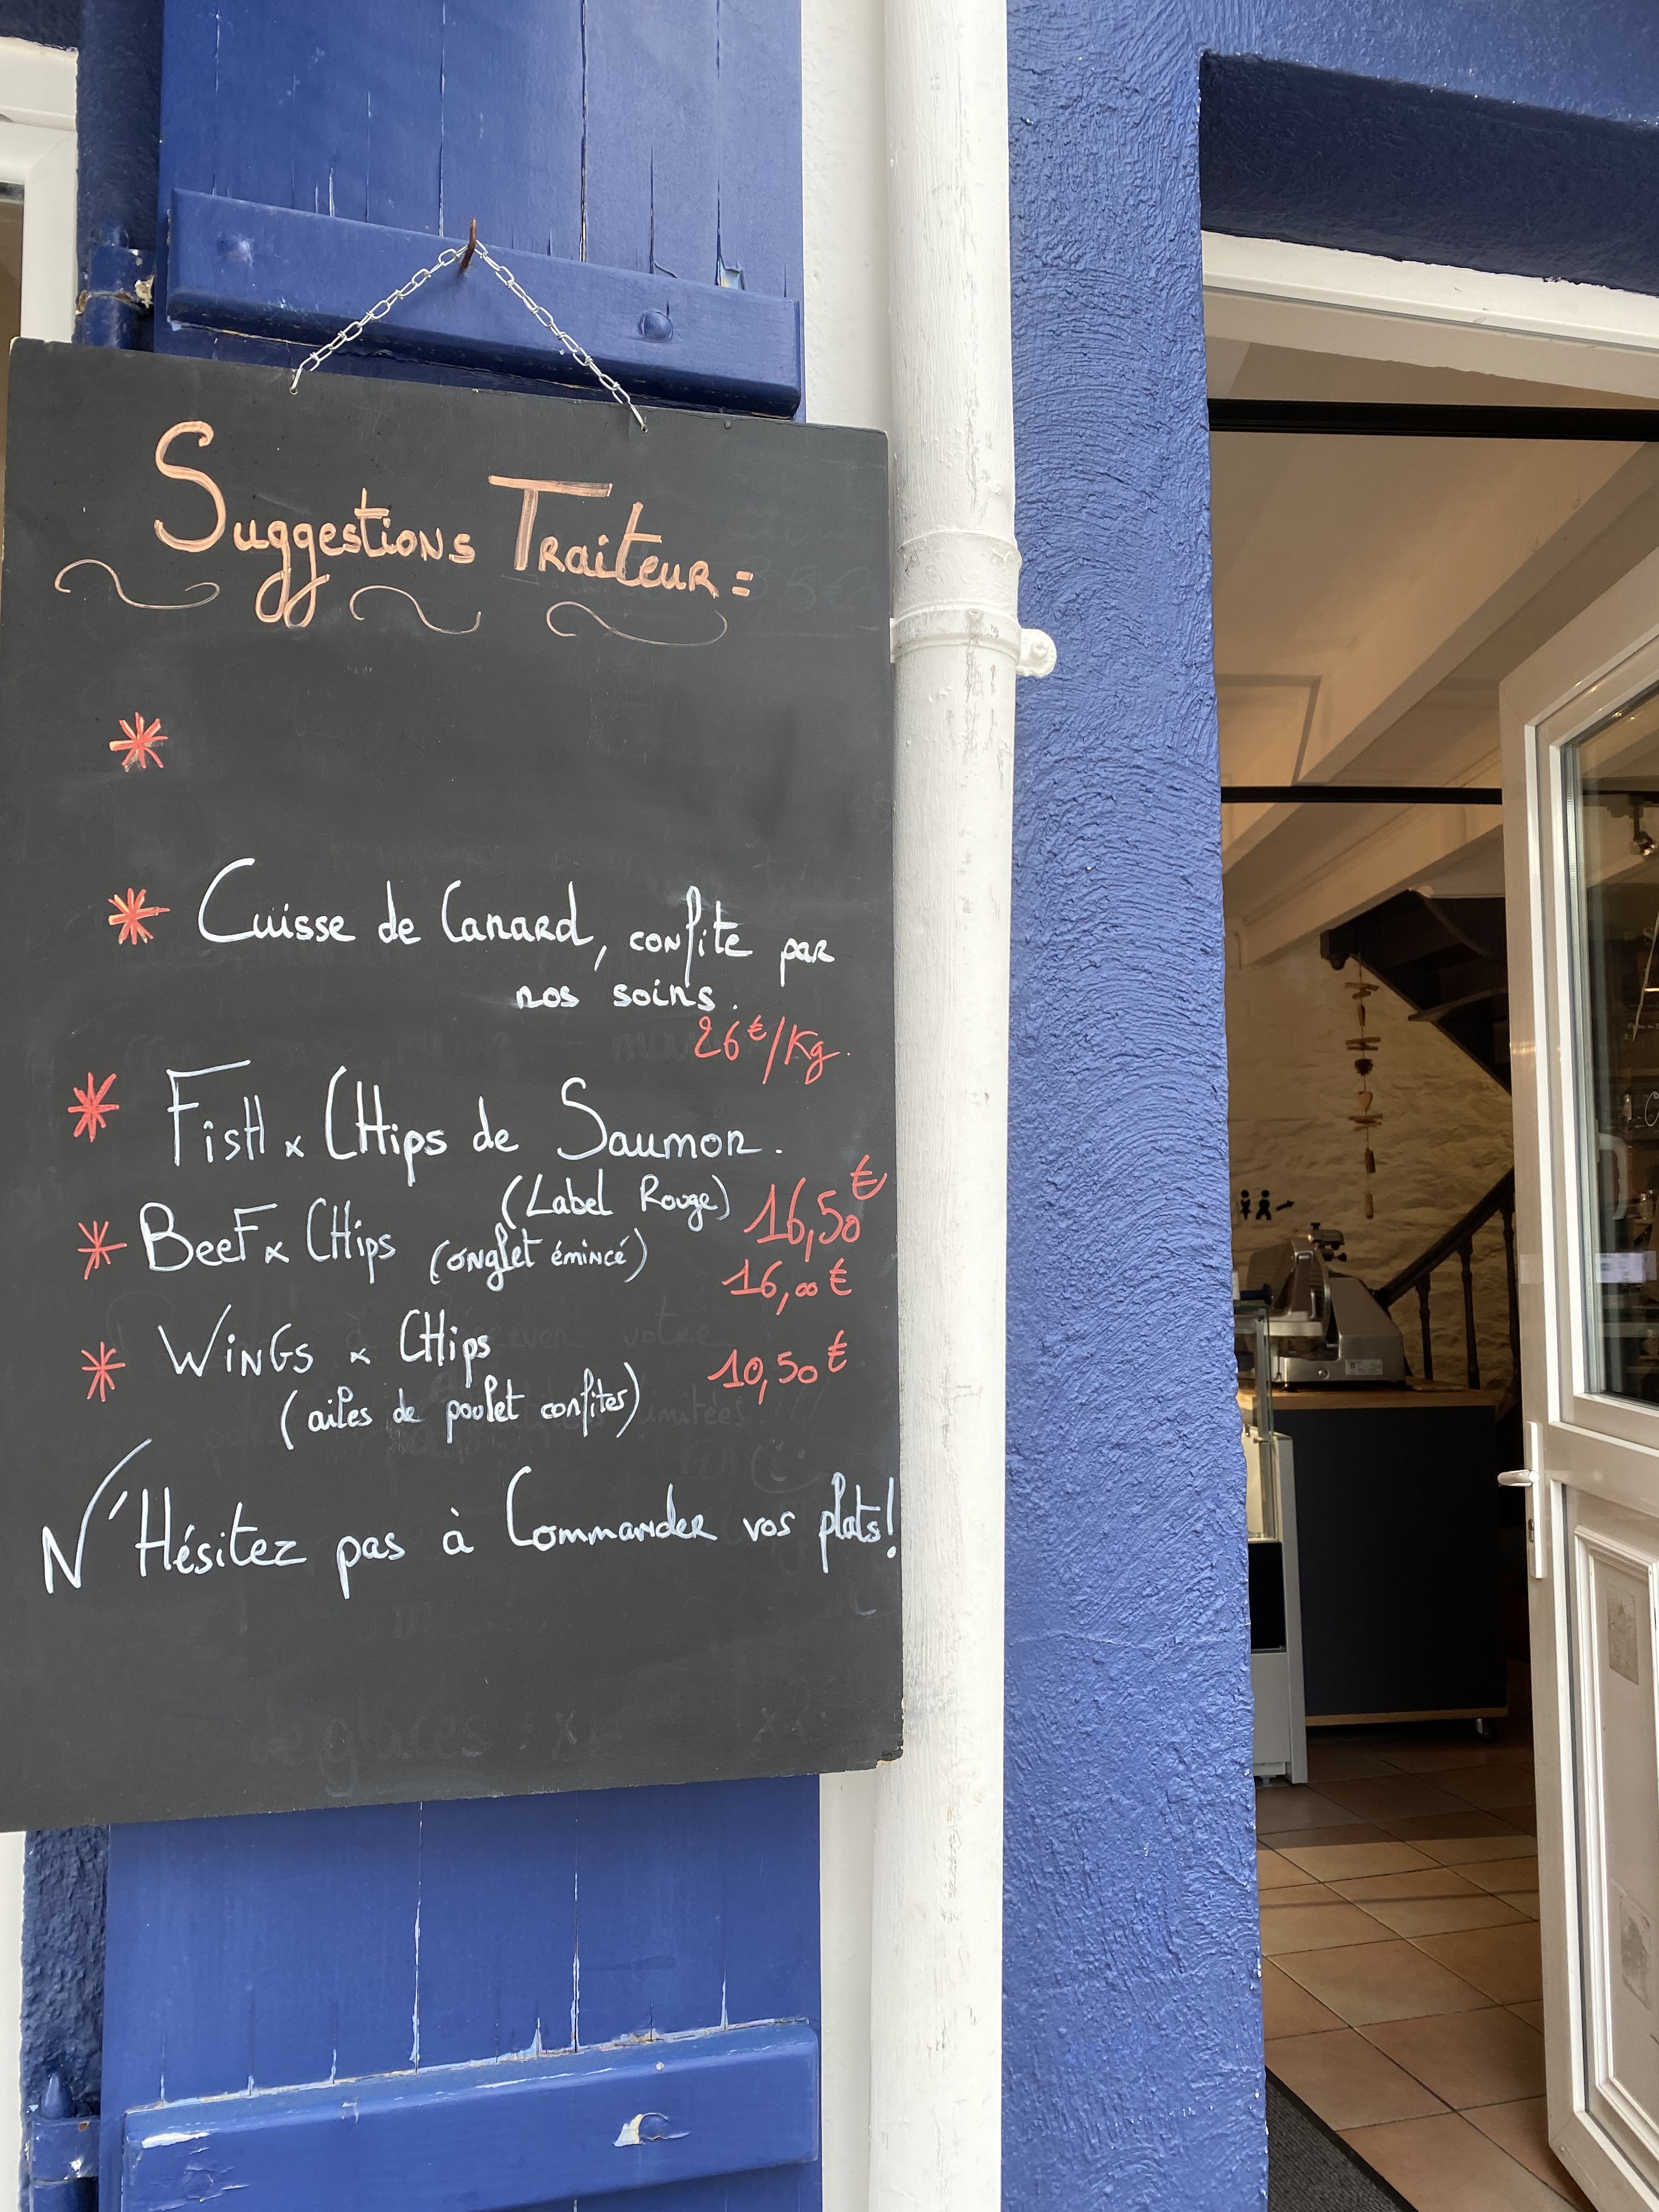 Suggestions Traiteur =
*
* Cuisse de Canard, confite par
nos soins.
26€/Kg.
* Fish x Chips de Saumon.
(Label Rouge) 16,50€
* Beef x Chips (onglet émincé)
16,00€
* Wings x Chips 10,50€
(ailes de poulet confites)
N'Hésitez pas à Commander vos plats!